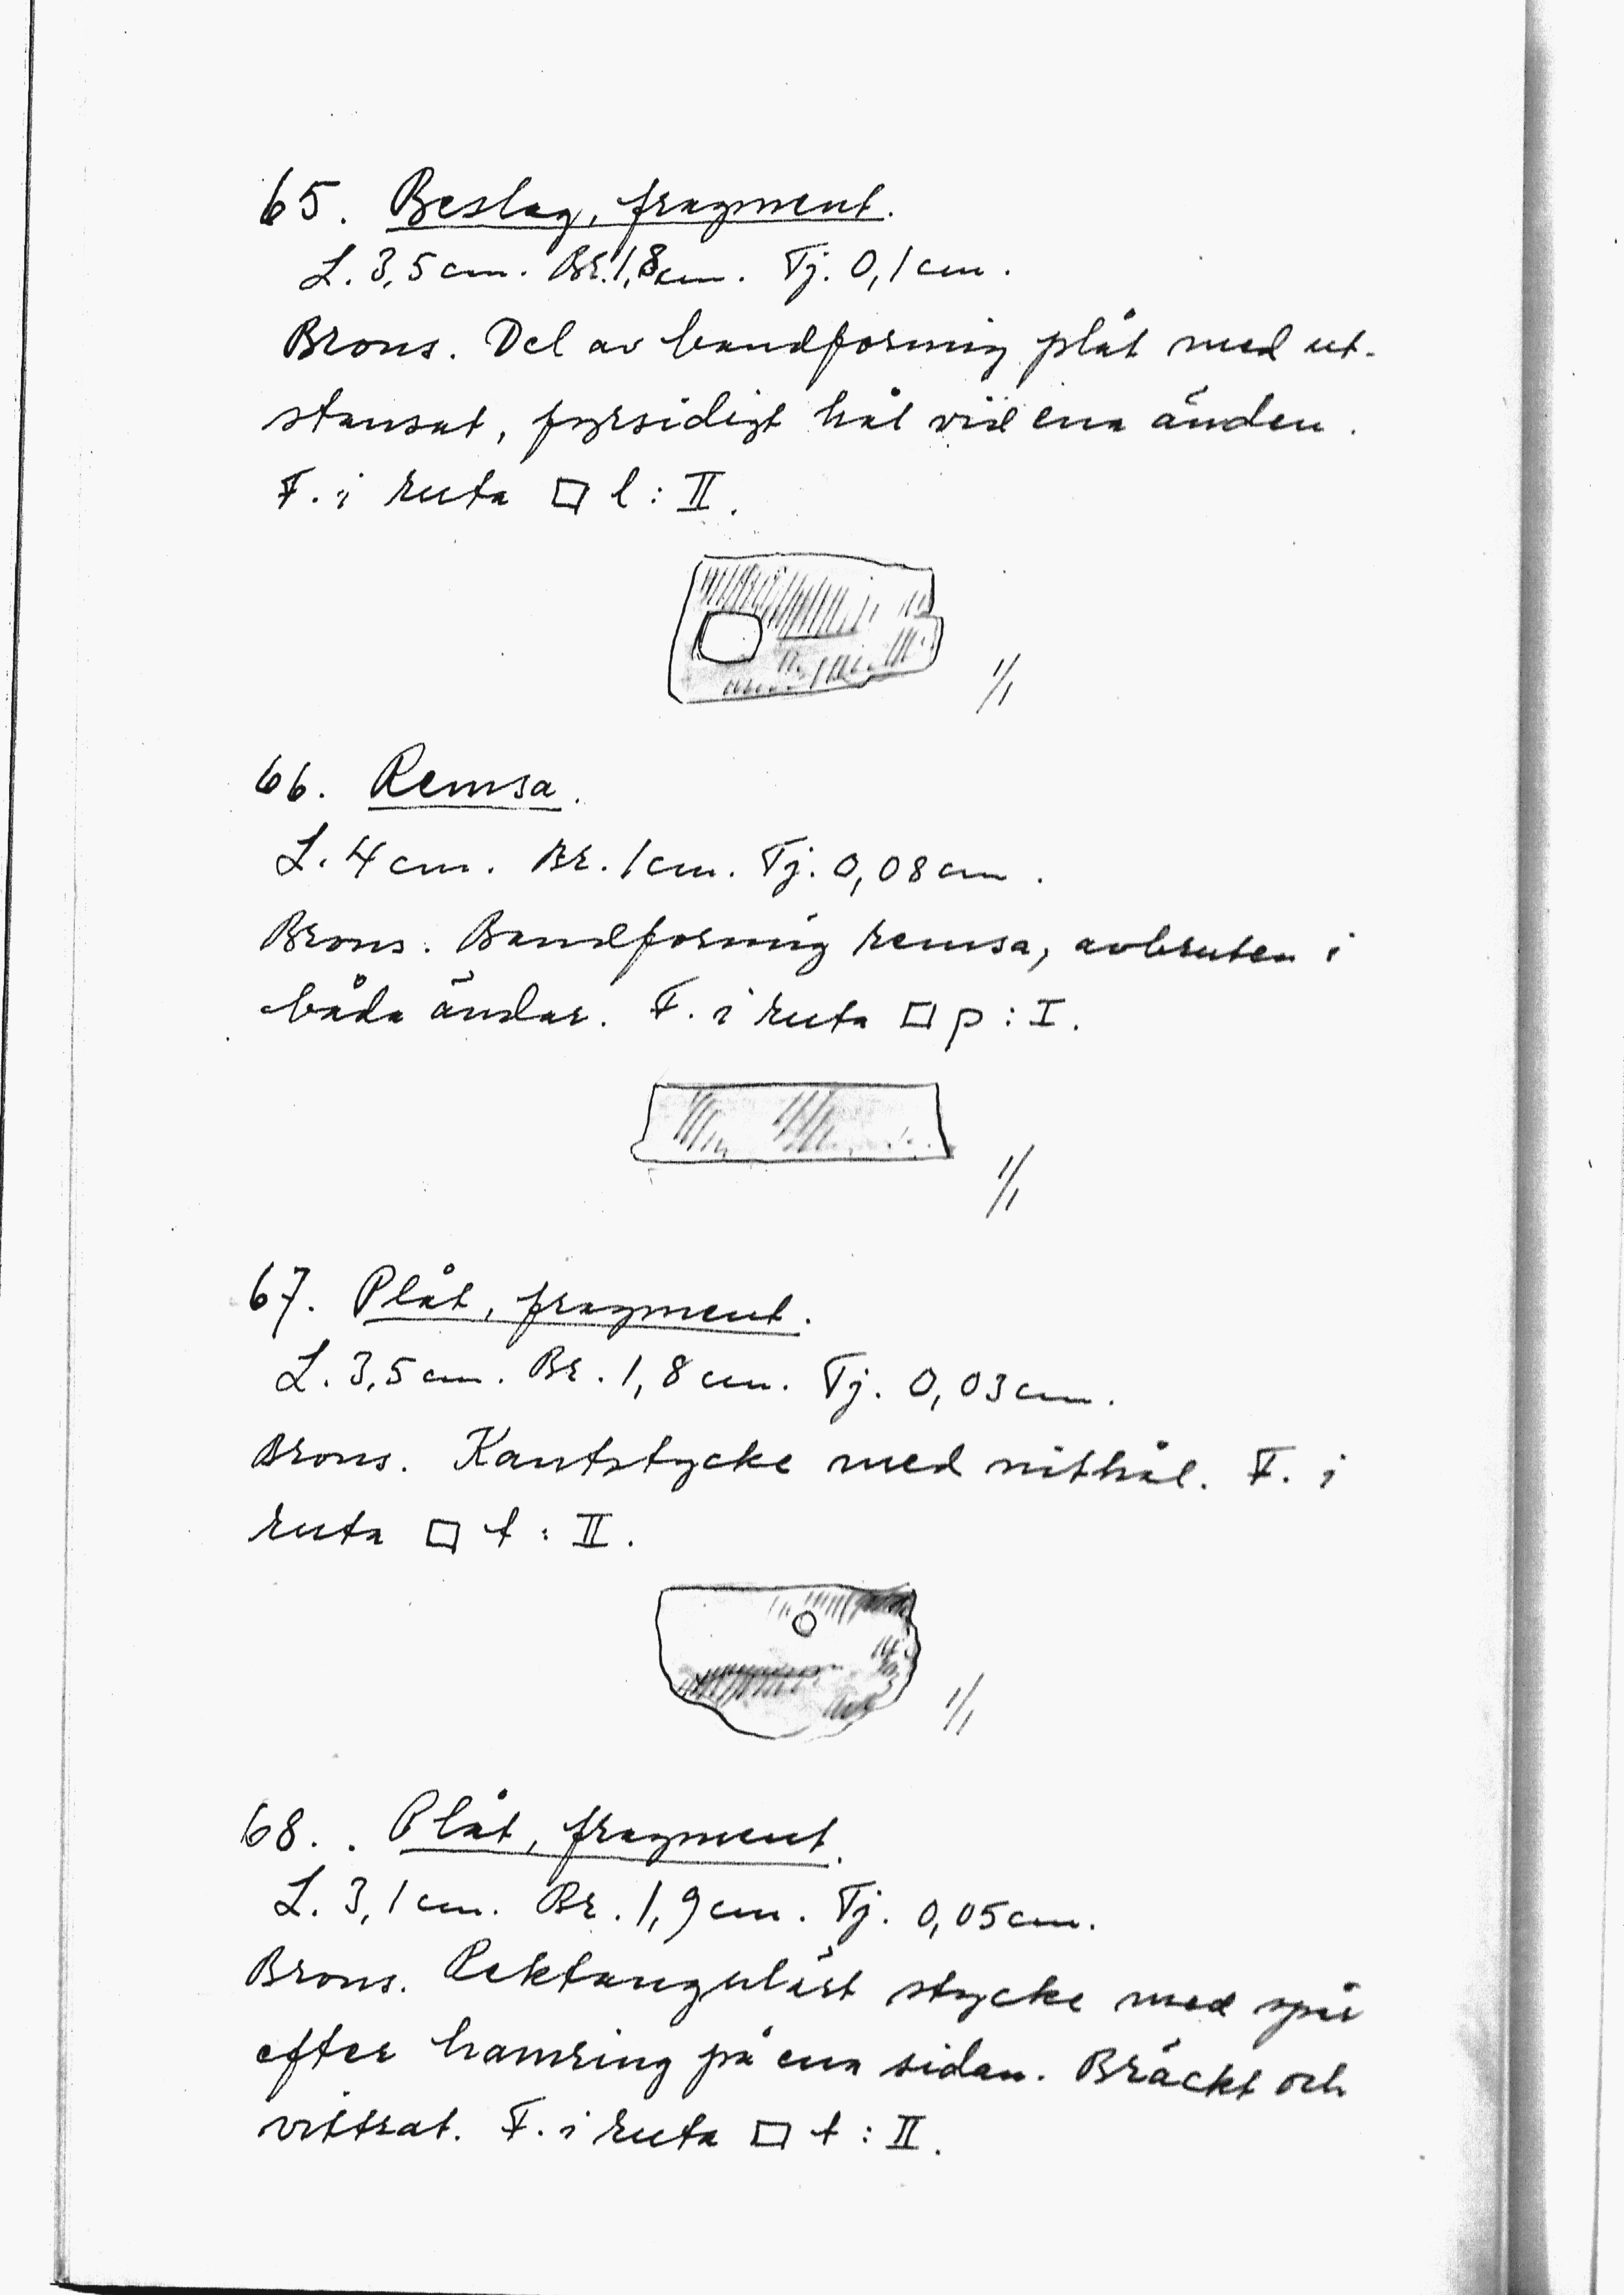 65. Beslag, fragment.
L. 3,5 cm. Br. 1,8 cm. Tj. 0,1 cm.
Brons. Del av bandformig plåt med ut-
stansat, fyrsidigt hål vid ena änden.
F. i ruta □ l : II.
1/1
66. Remsa.
L. 4 cm. Br. 1 cm. Tj. 0,08 cm.
Brons. Bandformig remsa, avbruten i
båda ändar. F. i ruta □ p : I.
1/1
67. Plåt, fragment.
L. 3,5 cm. Br. 1,8 cm. Tj. 0,03 cm.
Brons. Kantstycke med nithål. F. i
ruta □ t : II.
1/1
68. . Plåt, fragment.
L. 3,1 cm. Br. 1,9 cm. Tj. 0,05 cm.
Brons. Rektangulärt stycke med spår
efter hamring på ena sidan. Bräckt och
vittrat. F. i ruta □ t : II.